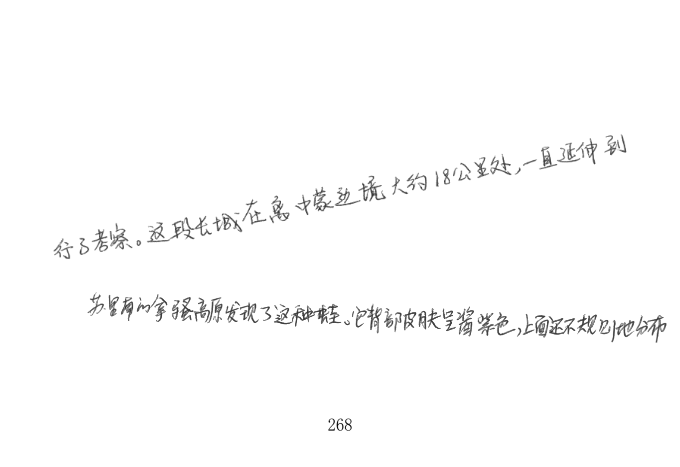 行了考察。这段长城在离中蒙边境大约18公里处,一直延伸到
苏里南的拿骚高原发现了这种蛙。它背部皮肤呈酱紫色,上面还不规则地分布
268